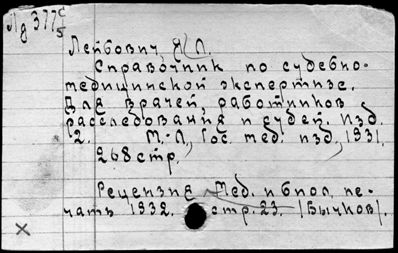 Лд 377с/5
Лейбович, Я Л.
Справочник по судебно-
медицинской экспертизе.
Для врачей, работников
расследования и судей. Изд.
2. М.-Л., Гос. мед. изд., 1931.
268 стр.
Рецензия Мед. и биол. пе-
чать 1932. стр. 23. (Бычков).